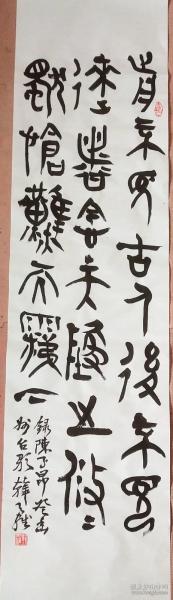 前不見古人後不見
來者念天地之悠〻
獨愴然而涕下
錄陳子昂登幽
州台歌